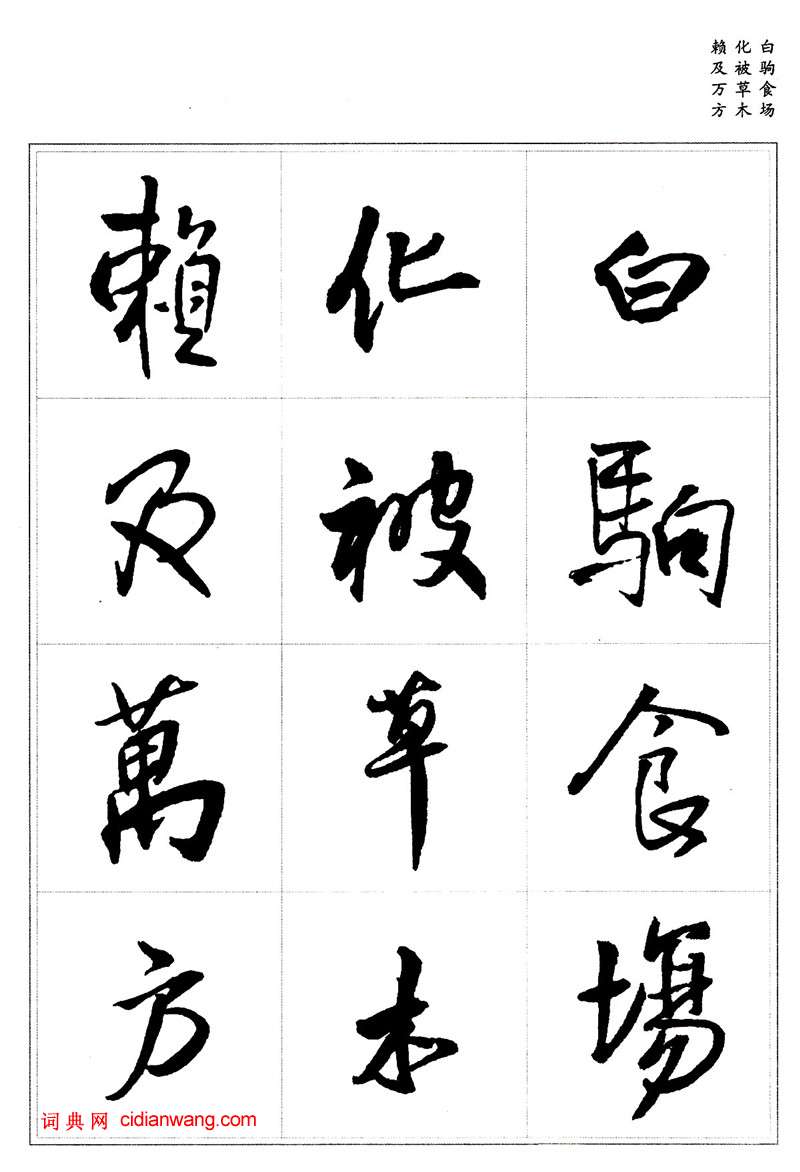 白驹食场
化被草木
赖及万方
白駒食場
化被草木
賴及萬方
词典网 cidianwang.com